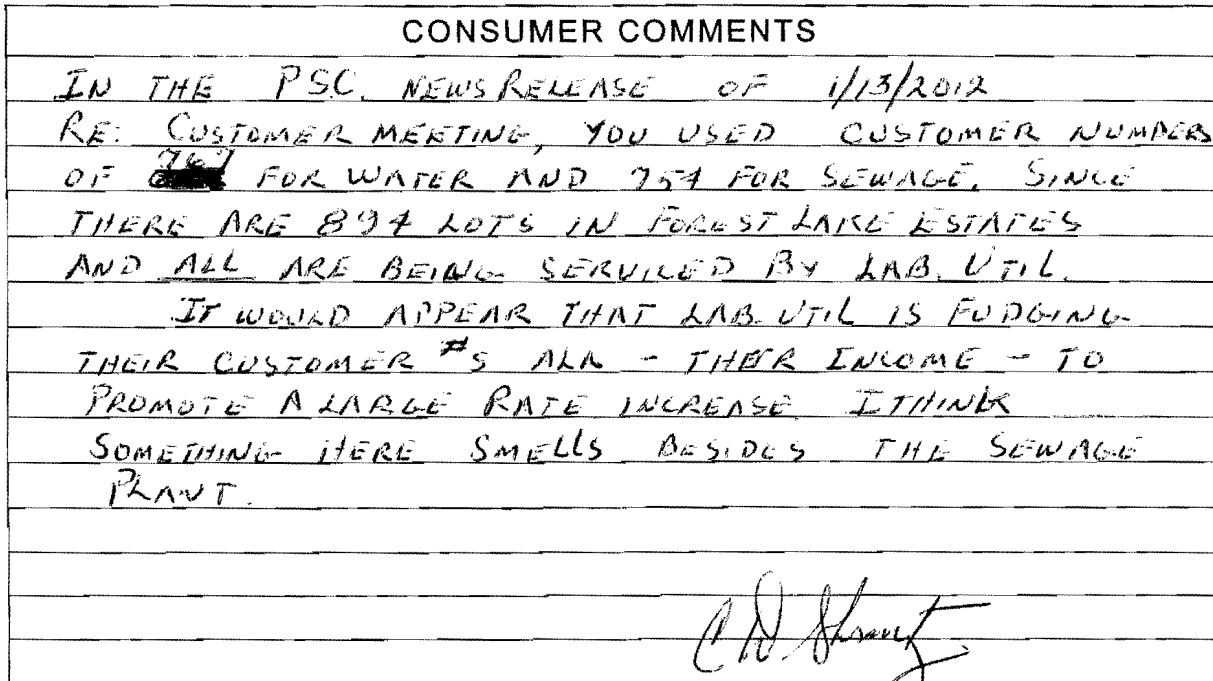 CONSUMER COMMENTS
IN THE PSC. NEWS RELEASE OF 1/13/2012
RE: CUSTOMER MEETING, YOU USED CUSTOMER NUMBERS
OF 767 FOR WATER AND 754 FOR SEWAGE. SINCE
THERE ARE 894 LOTS IN FOREST LAKE ESTATES
AND ALL ARE BEING SERVICED BY LAB. UTIL.
IT WOULD APPEAR THAT LAB. UTIL IS FUDGING
THEIR CUSTOMER #S ALA - THEIR INCOME - TO
PROMOTE A LARGE RATE INCREASE. I THINK
SOMETHING HERE SMELLS BESIDES THE SEWAGE
PLANT.
C D